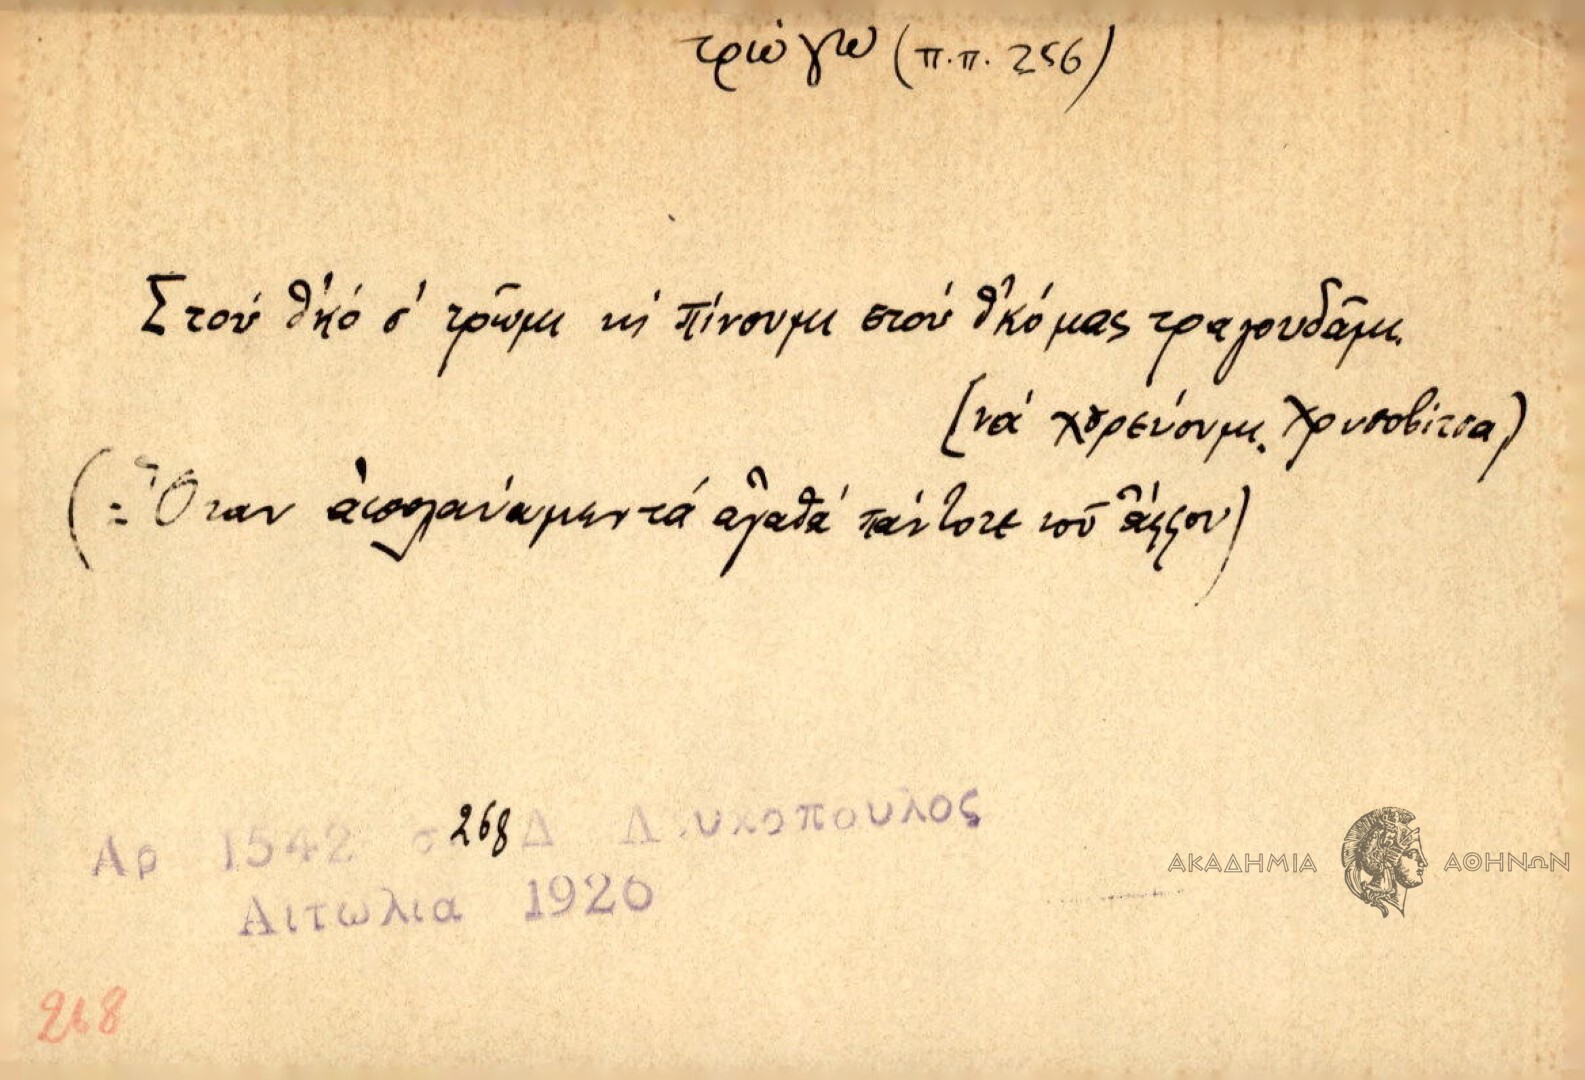 τρώγω (π.π. 256)
Στού θ'κό σ' τρῶμι κι πίνουμι στού θ'κό μας τραγουδᾶμι.
(νά χουρεύουμι. Χρυσοβίτσα)
(= Ὅταν ἀπολαύωμεν τά ἀγαθά πάντοτε τοῦ ἄλλου)
Αρ 1542 σ 268 Δ Λουκοπουλος
Αιτωλια 1920
268
ΑΚΑΔΗΜΙΑ ΑΘΗΝΩΝ